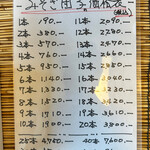 みそぎ団子価格表
(税込)
1本 190.- 11本 2090.-
2本 380.- 12本 2280.-
3本 570.- 13本 2470.-
4本 760.- 14本 2660.-
5本 950.- 15本 2850.-
6本 1140.- 16本 3040.-
7本 1330.- 17本 3230.-
8本 1520.- 18本 3420.-
9本 1710.- 19本 3610.-
10本 1900.- 20本 3800.-
25本 4750.- 40本 7600.-